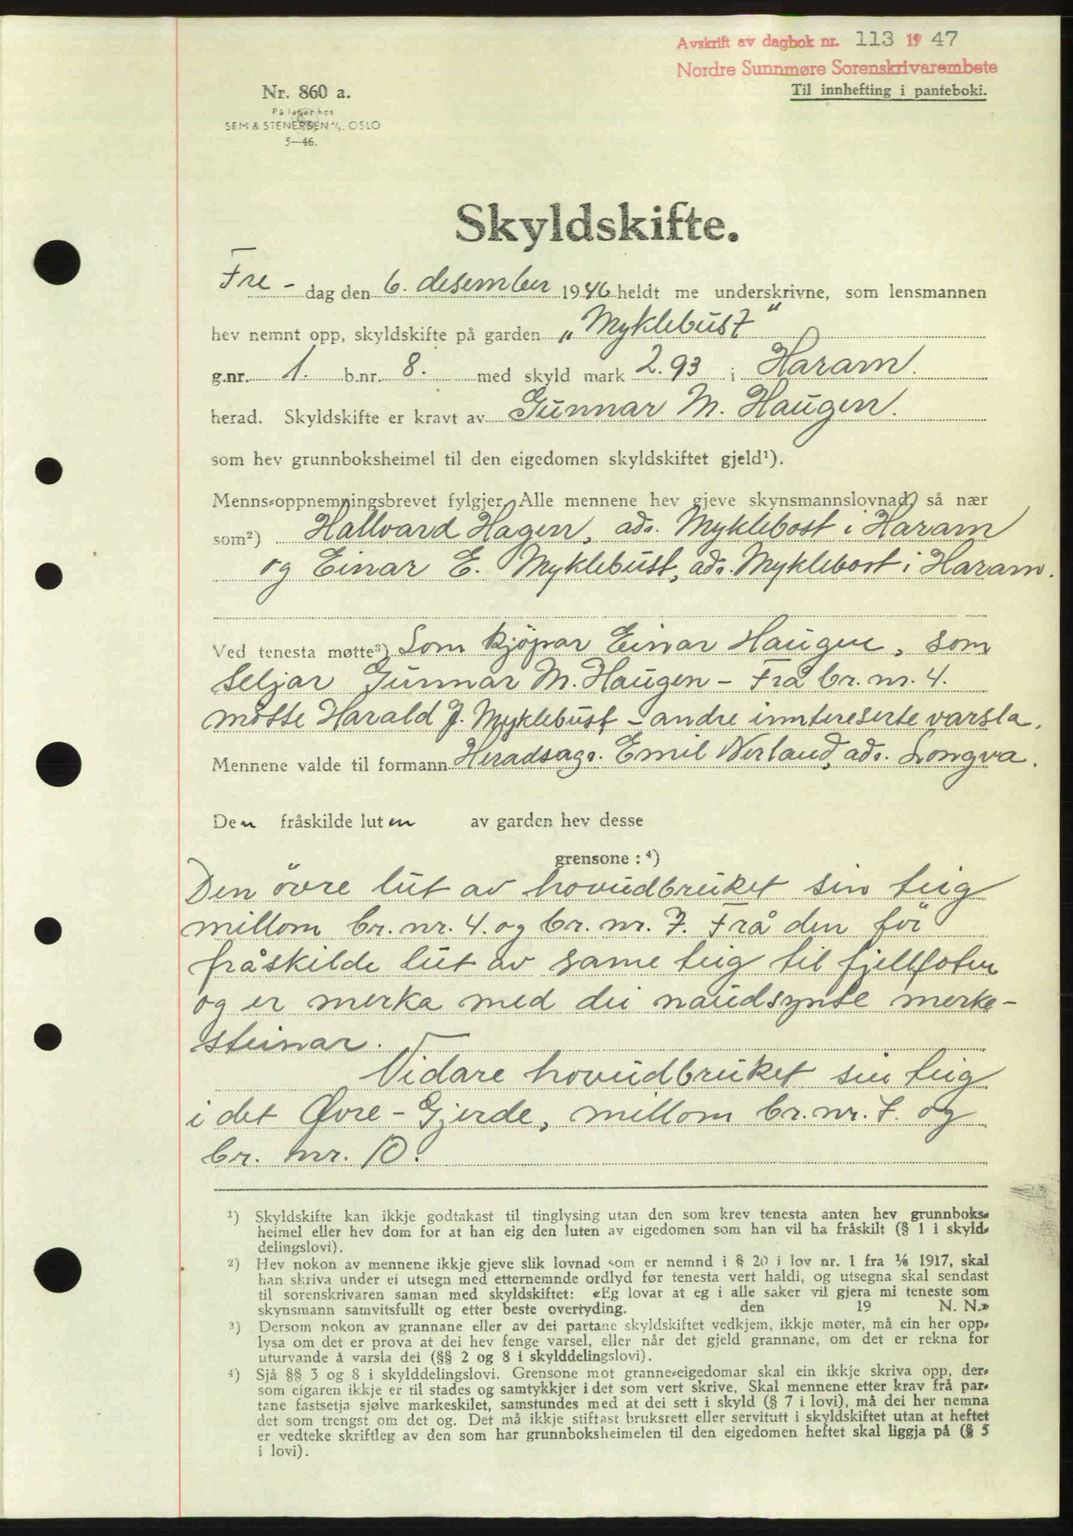 Avskrift av dagbok nr. 113 1947
Nordre Sunnmøre Sorenskrivarembete
Til innhefting i panteboki.
Nr. 860 a.
På lager hos
SEM & STENERSEN A/S. OSLO
5—46.
Skyldskifte.
Fre- dag den 6. desember 1946 heldt me underskrivne, som lensmannen
hev nemnt opp, skyldskifte på garden „Myklebust"
g.nr. 1. b.nr. 8. med skyld mark 2.93 i Haram.
herad. Skyldskifte er kravt av Gunnar M. Haugen.
som hev grunnboksheimel til den eigedomen skyldskiftet gjeld¹).
Menns-oppnemningsbrevet fylgjer. Alle mennene hev gjeve skynsmannslovnad, så nær
som²) Hallvard Hagen, ads. Myklebost i Haram
og Einar E. Myklebust, ads. Myklebost i Haram.
Ved tenesta møtte³) Som kjöpar Einar Haugen, som
seljar Gunnar M. Haugen - Frå br. nr. 4.
møtte Harald J. Myklebust - andre inntereserte varsla.
Mennene valde til formann Heradsagr. Emil Nerland, ads. Longva.
Den fråskilde luten av garden hev desse
grensone: ⁴)
Den övre lut av hovudbruket sin teig
millom br. nr. 4. og br. nr. 7. Frå den för
fråskilde lut av same teig til fjellfoten
og er merka med dei naudsynte merke-
steinar.
Vidare hovudbruket sin teig
i det Øvre-Gjerde, millom br. nr. 7. og
br. nr. 10.
¹) Skyldskifte kan ikkje godtakast til tinglysing utan den som krev tenesta anten hev grunnboks-
heimel eller hev dom for at han eig den luten av eigedomen som han vil ha fråskilt (§ 1 i skyld-
delingslovi).
²) Hev nokon av mennene ikkje gjeve slik lovnad som er nemnd i § 20 i lov nr. 1 fra 1/6 1917, skal
han skriva under ei utsegn med etternemnde ordlyd før tenesta vert haldi, og utsegna skal sendast
til sorenskrivaren saman med skyldskiftet: «Eg lovar at eg i alle saker vil gjera mi teneste som
skynsmann samvitsfullt og etter beste overtyding. den 19 N. N.»
³) Dersom nokon av grannane eller av dei partane skyldskiftet vedkjem, ikkje møter, må ein her opp-
lysa om det er prova at dei hev fenge varsel, eller når det gjeld grannane, om det er rekna for
uturvande å varsla dei (§§ 2 og 8 i skylddelingslovi).
⁴) Sjå §§ 3 og 8 i skylddelingslovi. Grensone mot granne-eigedomar skal ein ikkje skriva opp, der-
som eigaren ikkje er til stades og samtykkjer i det som vert skrive. Skal mennene etter krav frå par-
tane fastsetja sjølve markeskilet, samstundes med at dei sett i skyld (§ 7 i lovi), må dei her nemna
det som trengst om det og. Det må ikkje stiftast bruksrett eller servitutt i skyldskiftet utan at heftet
er vedteke skriftleg av den som har grunnboksheimelen til den eigedomen heftet skal liggja på (§ 5
i lovi).